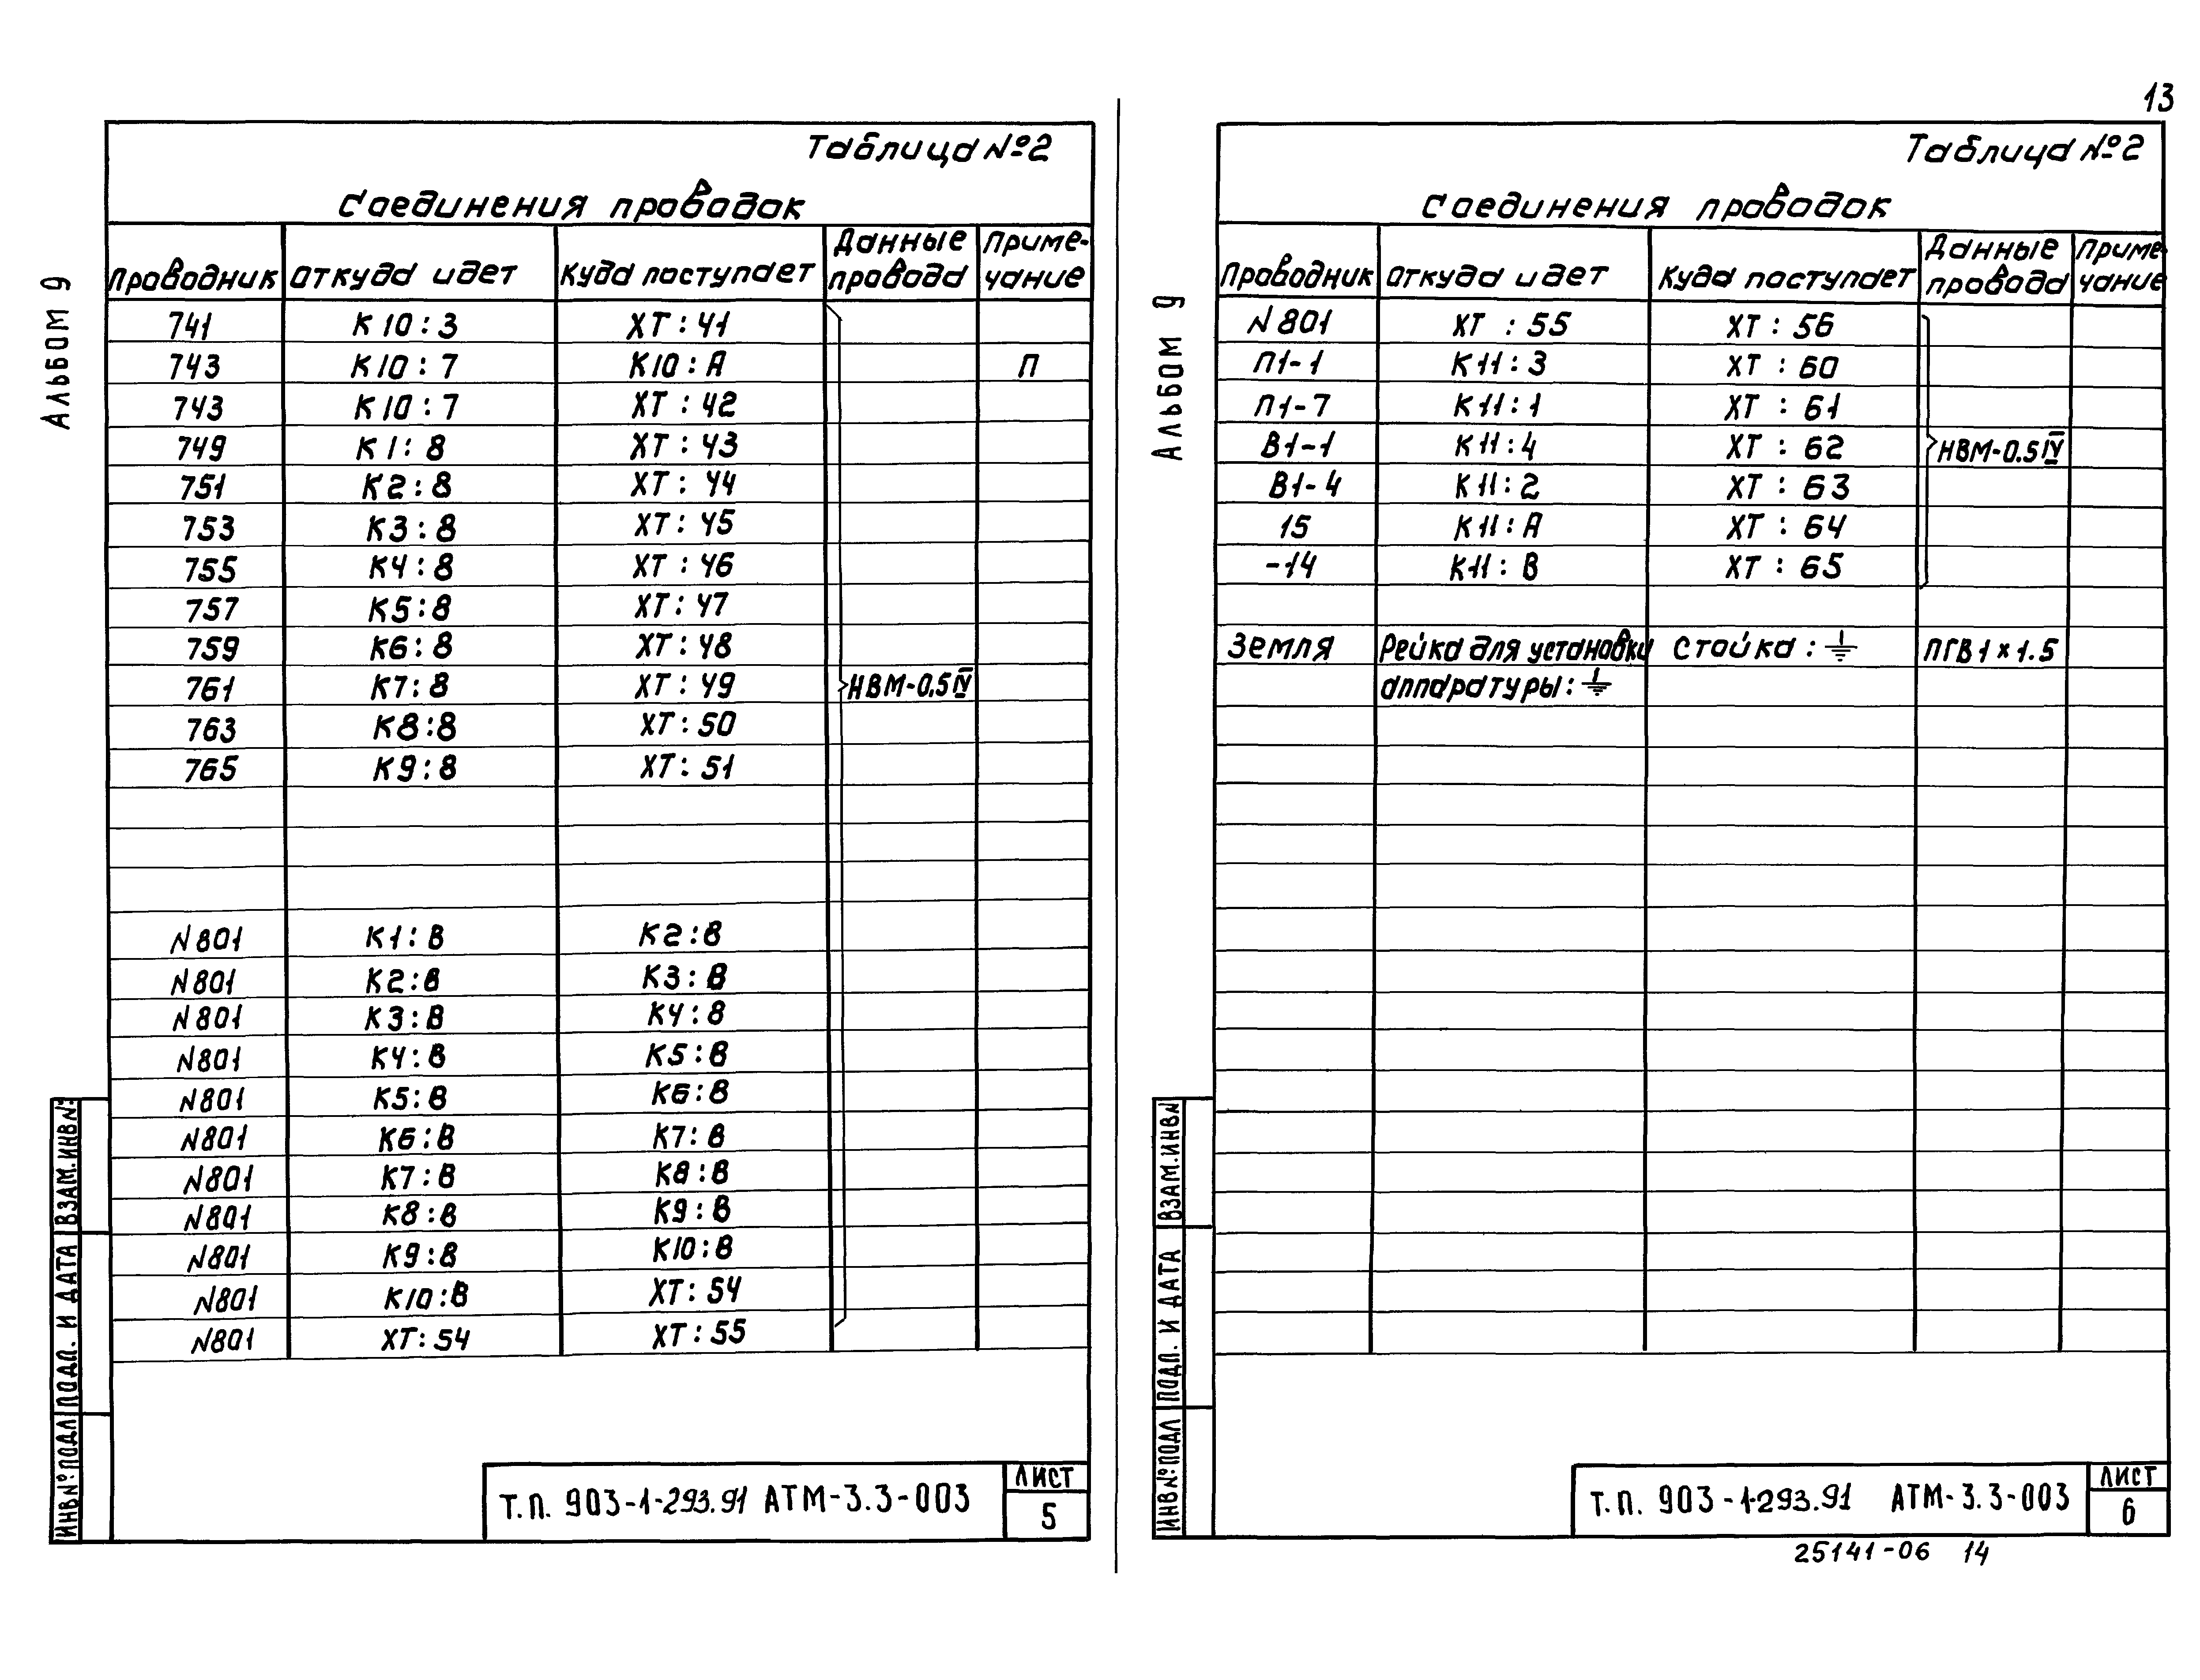 13
Альбом 9
Таблица №2
Соединения проводок
Проводник | Откуда идет | Куда поступает | Данные провода | Приме-чание
741 | К10:3 | ХТ:41
743 | К10:7 | К10:А | П
743 | К10:7 | ХТ:42
749 | К1:8 | ХТ:43
751 | К2:8 | ХТ:44
753 | К3:8 | ХТ:45
755 | К4:8 | ХТ:46
757 | К5:8 | ХТ:47
759 | К6:8 | ХТ:48
761 | К7:8 | ХТ:49 | НВМ-0.5 IV
763 | К8:8 | ХТ:50
765 | К9:8 | ХТ:51
N801 | К1:В | К2:В
N801 | К2:В | К3:В
N801 | К3:В | К4:В
N801 | К4:В | К5:В
N801 | К5:В | К6:В
N801 | К6:В | К7:В
N801 | К7:В | К8:В
N801 | К8:В | К9:В
N801 | К9:В | К10:В
N801 | К10:В | ХТ:54
N801 | ХТ:54 | ХТ:55
ИНВ№ПОДЛ | ПОДП. И ДАТА | ВЗАМ.ИНВN:
Т.П. 903-1-293.91 АТМ-3.3-003
ЛИСТ
5
Альбом 9
Таблица №2
Соединения проводок
Проводник | Откуда идет | Куда поступает | Данные провода | Приме-чание
N801 | ХТ:55 | ХТ:56
П1-1 | К11:3 | ХТ:60
П1-7 | К11:1 | ХТ:61
В1-1 | К11:4 | ХТ:62 | НВМ-0.5 IV
В1-4 | К11:2 | ХТ:63
15 | К11:А | ХТ:64
-14 | К11:В | ХТ:65
Земля | Рейка для установки | Стойка: ⏚ | ПГВ1×1.5
аппаратуры: ⏚
ИНВ№ПОДЛ | ПОДП. И ДАТА | ВЗАМ.ИНВN
Т.П. 903-1-293.91 АТМ-3.3-003
ЛИСТ
6
25141-06 14